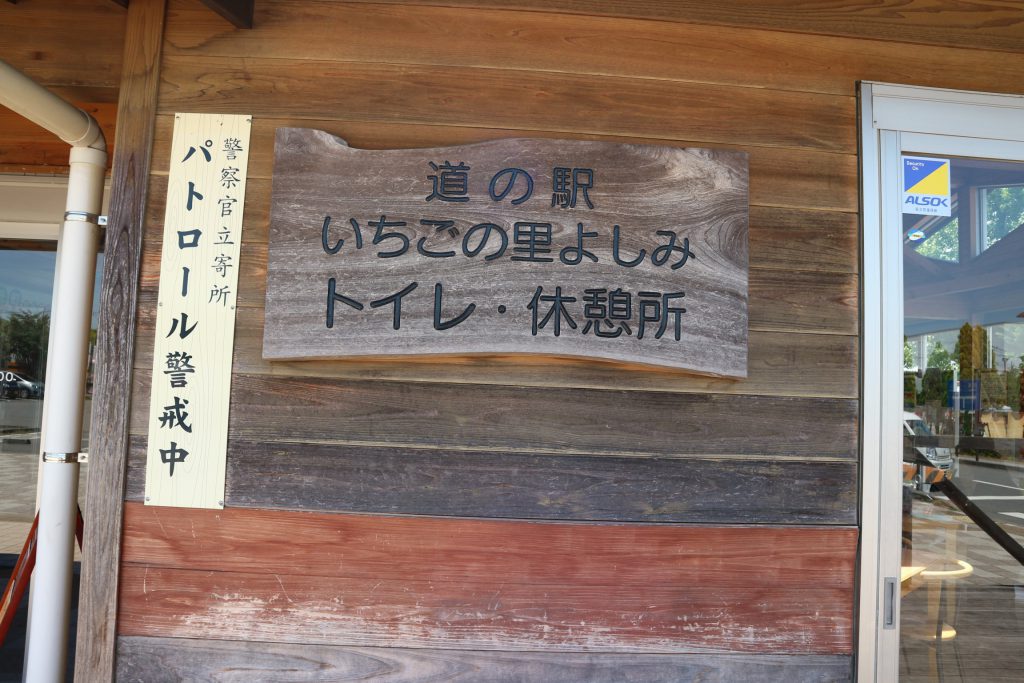 警察官立寄所
パトロール警戒中
道の駅
いちごの里よしみ
トイレ・休憩所
Security
On
ALSOK